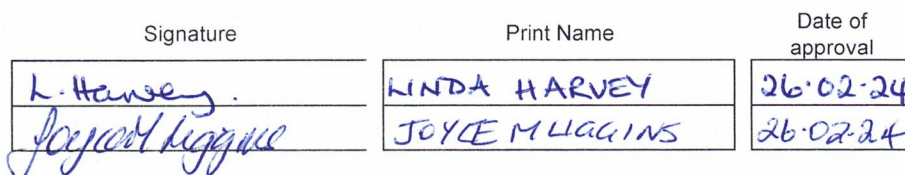 Signature Print Name Date of approval
L. Harvey. LINDA HARVEY 26.02.24
Joyce M Liggins JOYCE M LIGGINS 26.02.24